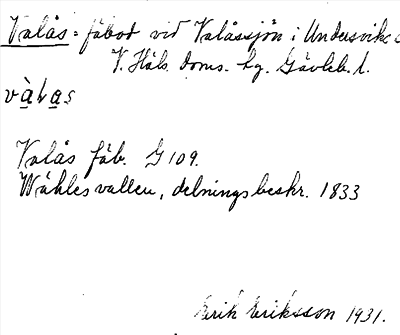 Valås = fäbod vid Valåssjön i Undersvik
V. Häls. doms. hg. Gävleb. l.
vàlas
Valås fäb. G 109.
Wåhlesvallen, delningsbeskr. 1833
Erik Eriksson 1931.